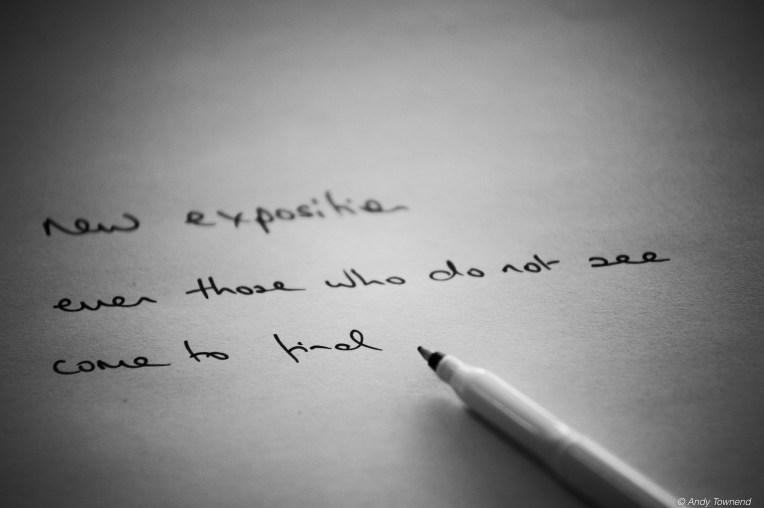 New exposition
even those who do not see
come to find
© Andy Townend